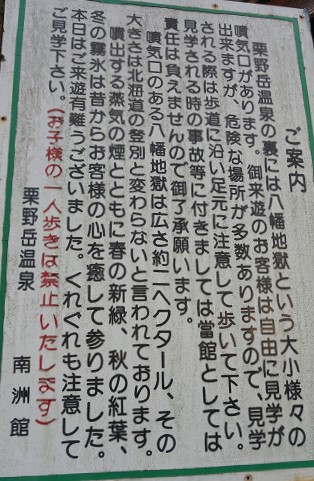 ご案内
栗野岳温泉の裏には八幡地獄という大小様々の
噴気口があります。御来遊のお客様は自由に見学が
出来ますが、危険な場所が多数ありますので、見学
される際は歩道に沿い足元に注意して歩いて下さい。
見学される時の事故等に付きましては當館としては
責任は負えませんので御了承願います。
噴気口のある八幡地獄は広さ約二ヘクタール、その
大きさは北海道の登別と変わらないと言われております。
噴出する蒸気の煙とともに春の新緑、秋の紅葉、
冬の霧氷は昔からお客様の心を癒して参りました。
本日はご来遊有難うございました。くれぐれも注意して
ご見学下さい。(お子様の一人歩きは禁止いたします)
栗野岳温泉 南洲館